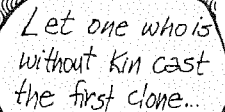 Let one who is
without kin cast
the first clone...